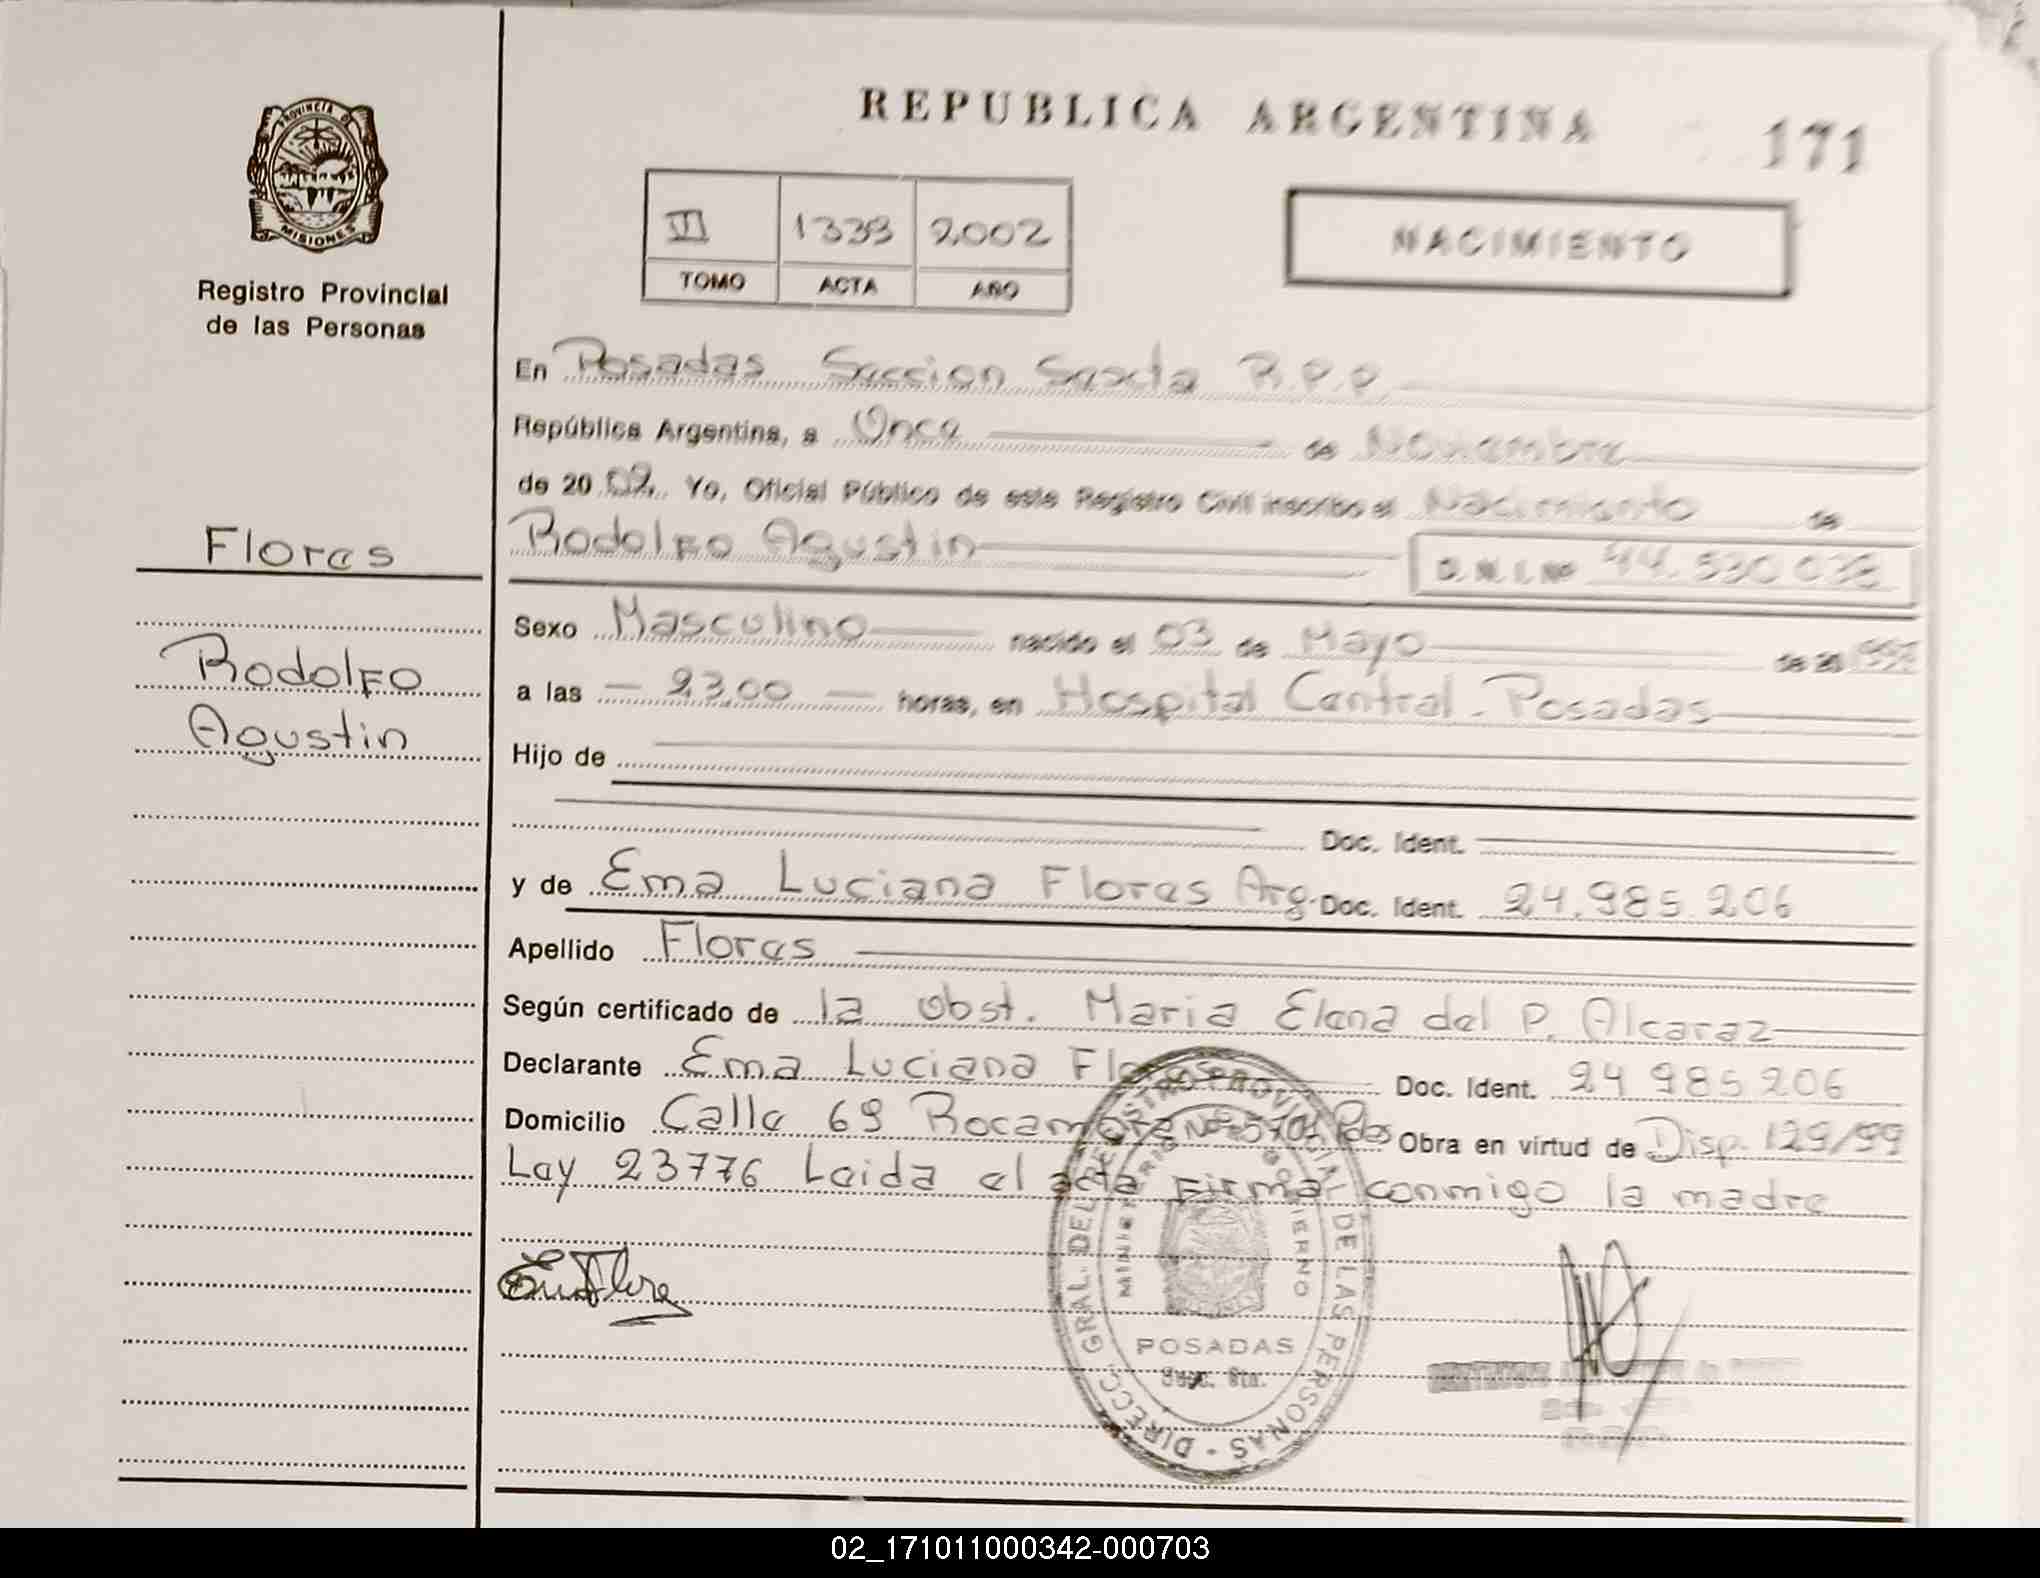 REPUBLICA ARGENTINA
171
PROVINCIA DE MISIONES
Registro Provincial
de las Personas
III 1339 2002
TOMO ACTA AÑO
NACIMIENTO
En Posadas Seccion Sexta R.P.P.
República Argentina, a Once de Noviembre
de 20 02. Yo, Oficial Público de este Registro Civil inscribo el Nacimiento de
Rodolfo Agustin D.N.I. Nº 44.530.038
Flores
Rodolfo
Agustin
Sexo Masculino nacido el 03 de Mayo de 20
a las - 23,00 - horas, en Hospital Central - Posadas
Hijo de
Doc. Ident.
y de Ema Luciana Flores Arg. Doc. Ident. 24.985.206
Apellido Flores
Según certificado de la Obst. Maria Elena del P. Alcaraz
Declarante Ema Luciana Flores Doc. Ident. 24 985 206
Domicilio Calle 69 Rocamora Nº 5701 Pdas Obra en virtud de Disp. 129/99
Ley 23776 Leida el acta firma conmigo la madre
DIRECC. GRAL. DEL REGISTRO PROVINCIAL DE LAS PERSONAS
MINISTERIO GOBIERNO
POSADAS
Secc. 6ta.
02_171011000342-000703